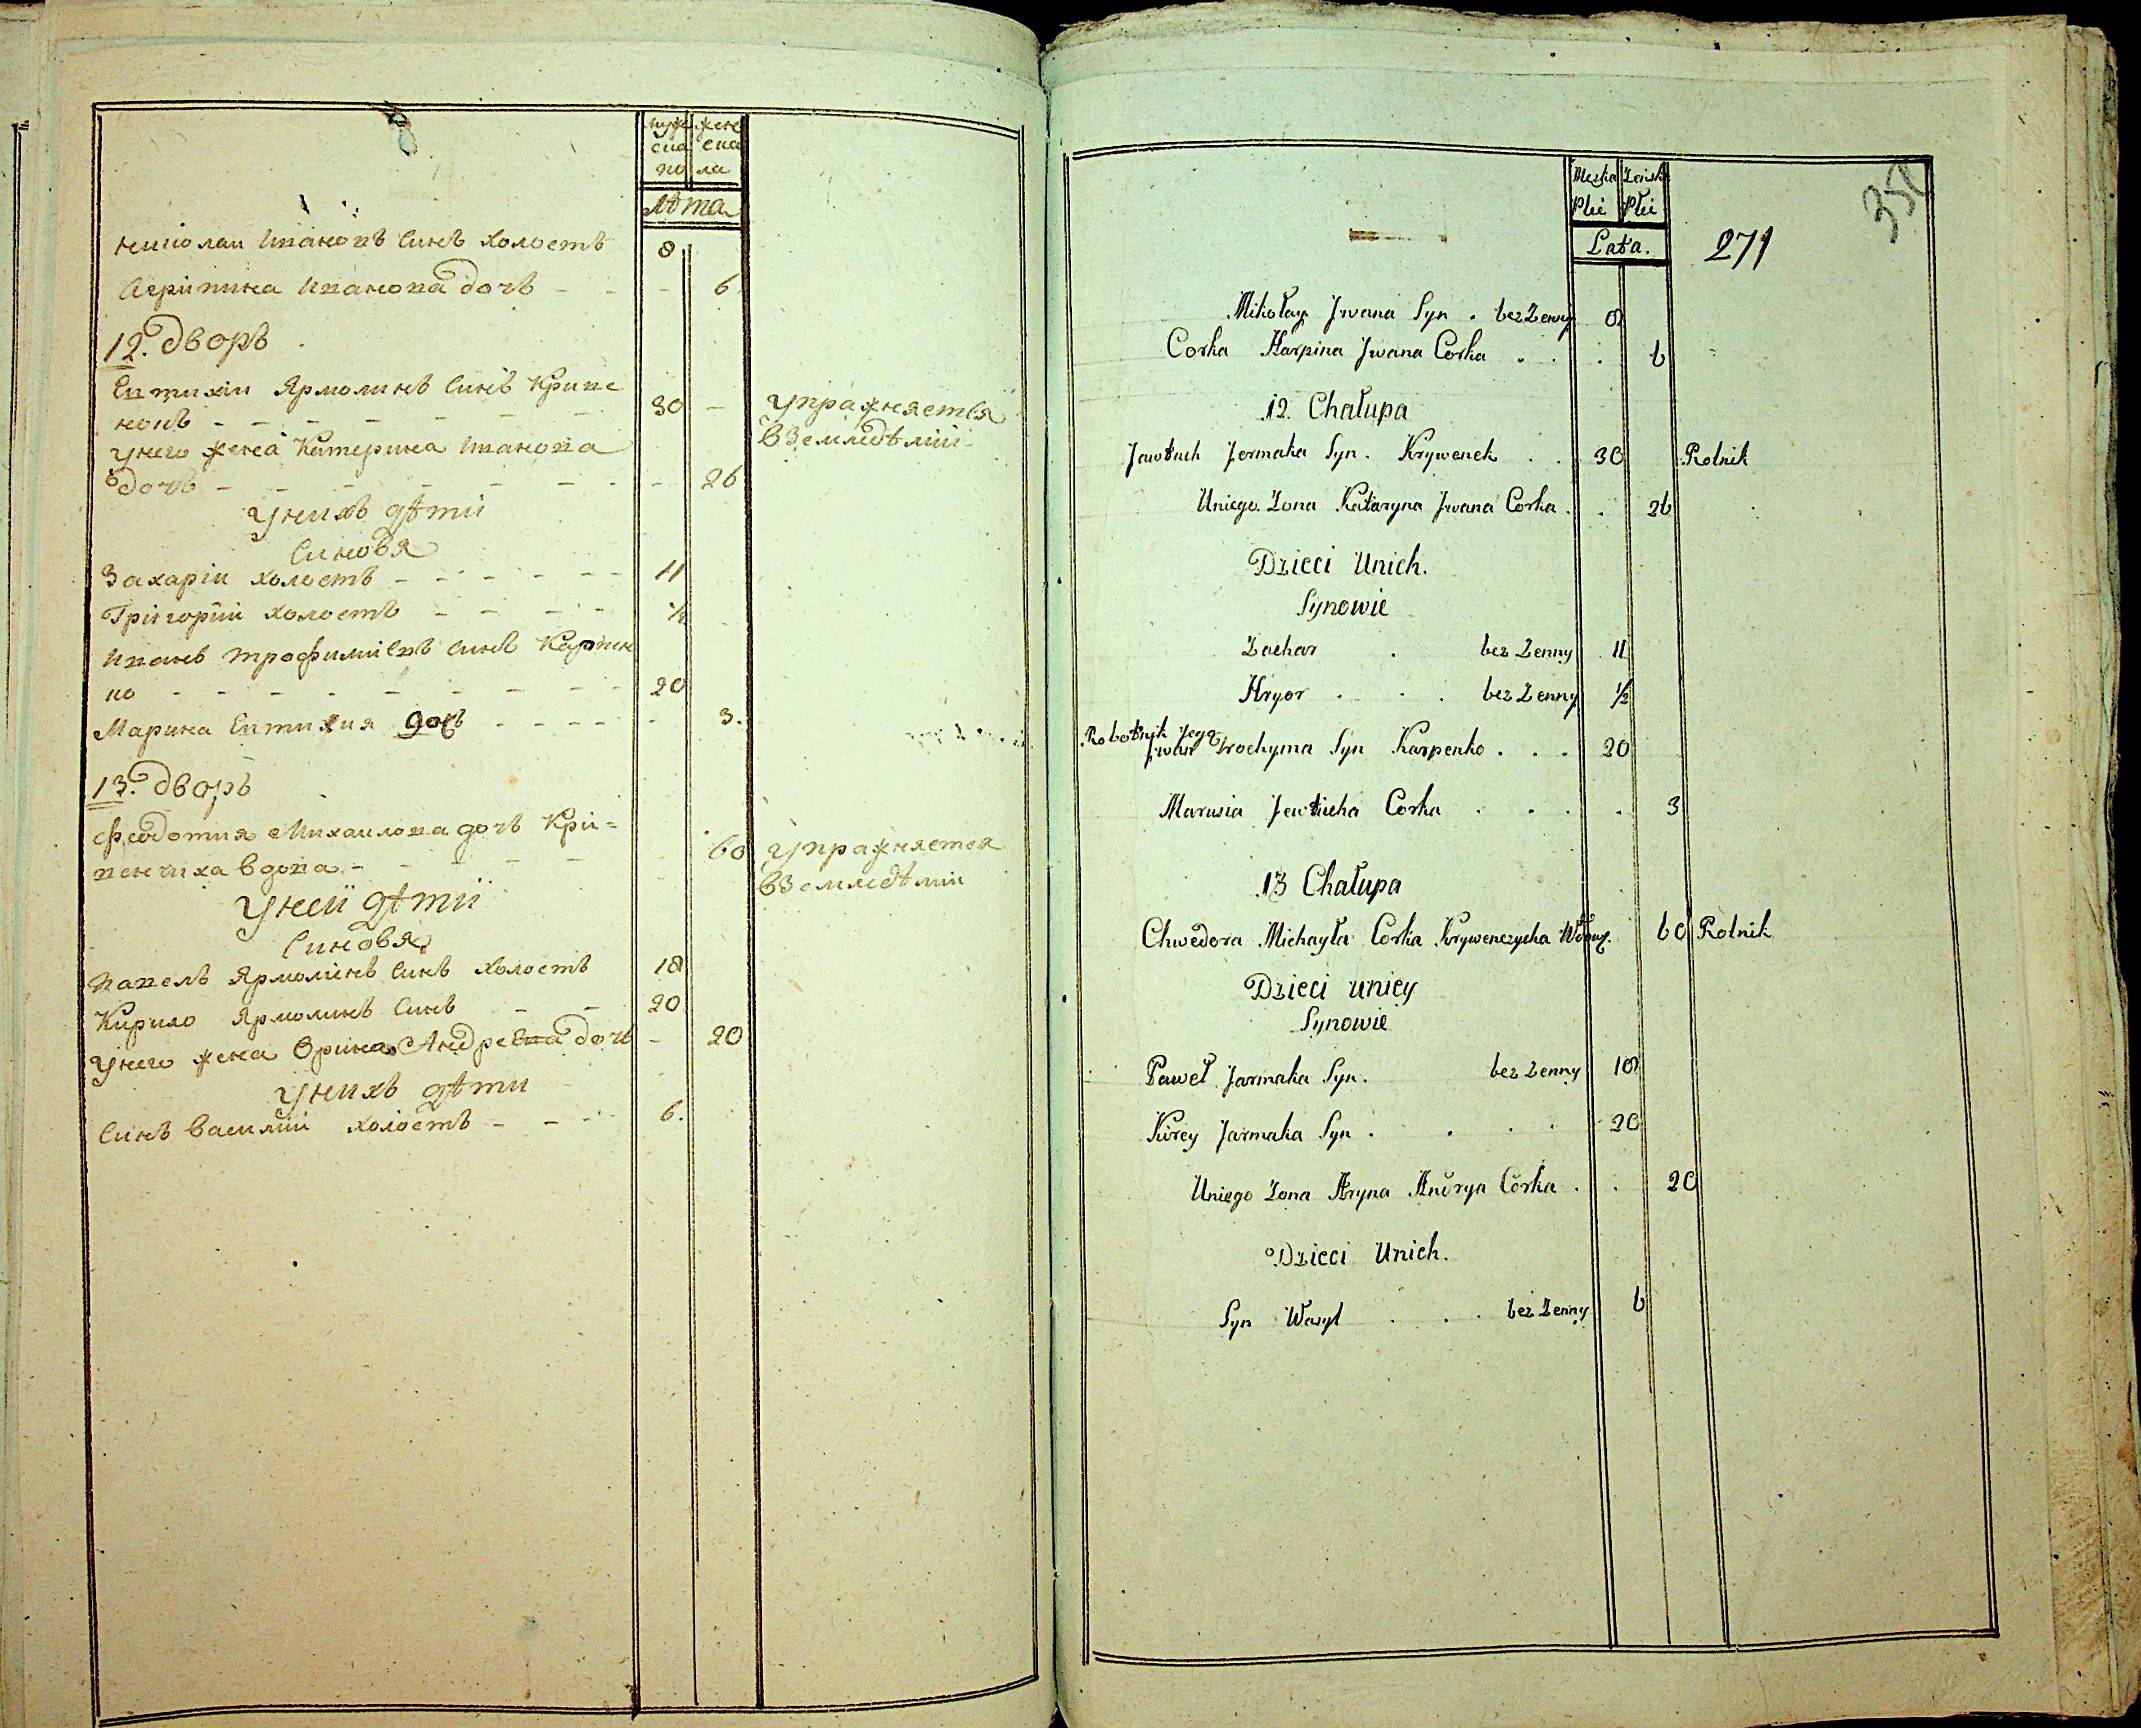 муже жене
ска ска
по ла
Лѣта
николаи Ивановъ Синъ холостъ 8
Агрипина Иванова дочъ - - - 6
12. дворъ
Евтихіи Ярмолинъ Синъ Криве
нокъ - - - - - - 30 - упражняется
вземледѣліи
унего жена Катерина Иванова
дочъ - - - - - - - - 26
унихъ дѣти
Синовя
Захаріи холостъ - - - - - - 11
Григорїи холостъ - - - - ½
Иванъ трофимивъ Синъ Карпен
ко - - - - - - - - - 20
Марина Евтихия дочъ - - - - - - 3.
13. дворъ
Феодотия Михаилова дочъ Кри=
венчиха вдова - - - - - 60 упражняется
вземледѣліи
унеи дѣти
Синовя
павелъ Ярмолинъ Синъ холостъ 18
Кирило Ярмолинъ Синъ - - 20
унего жена Орина Андрева дочъ - 20
унихъ дѣти
Синъ василіи холостъ - - - 6.
350
Męzka Zeńska
Płci Płci
Lata.
271
Mikołay Jwana Syn . bez Zenny 8
Corka Harpina Jwana Corka . . . 6
12. Chałupa
Jawtuch Jermaka Syn . Krywenek . . 30 Rolnik
Uniego Zona Kataryna Jwana Corka . . 26
Dzieci Unich.
Synowie
Zachar . bez Zenny 11
Hryor . . . bez Zenny ½
Robotnik Jego
Jwan Trochyma Syn Karpenko . . . 20
Marusia Jewtucha Corka . . . . 3
13 Chałupa
Chwedora Michayła Corka Krywenczycha Wdowa. 60 Rolnik
Dzieci uniey
Synowie
Paweł Jarmaka Syn. bez Zenny 18
Kirey Jarmaka Syn . . . . 20
Uniego Zona Aryna Andrya Córka . . 20
Dzieci Unich.
Syn Wasyl . . . bez Zenny 6